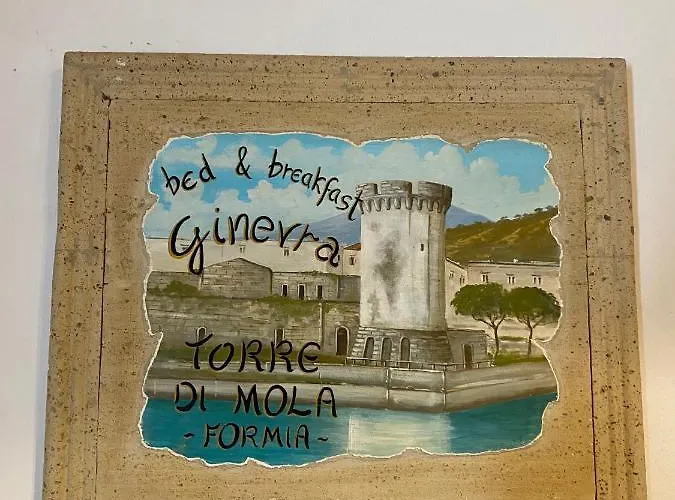 bed & breakfast
Ginevra
TORRE
DI MOLA
- FORMIA -